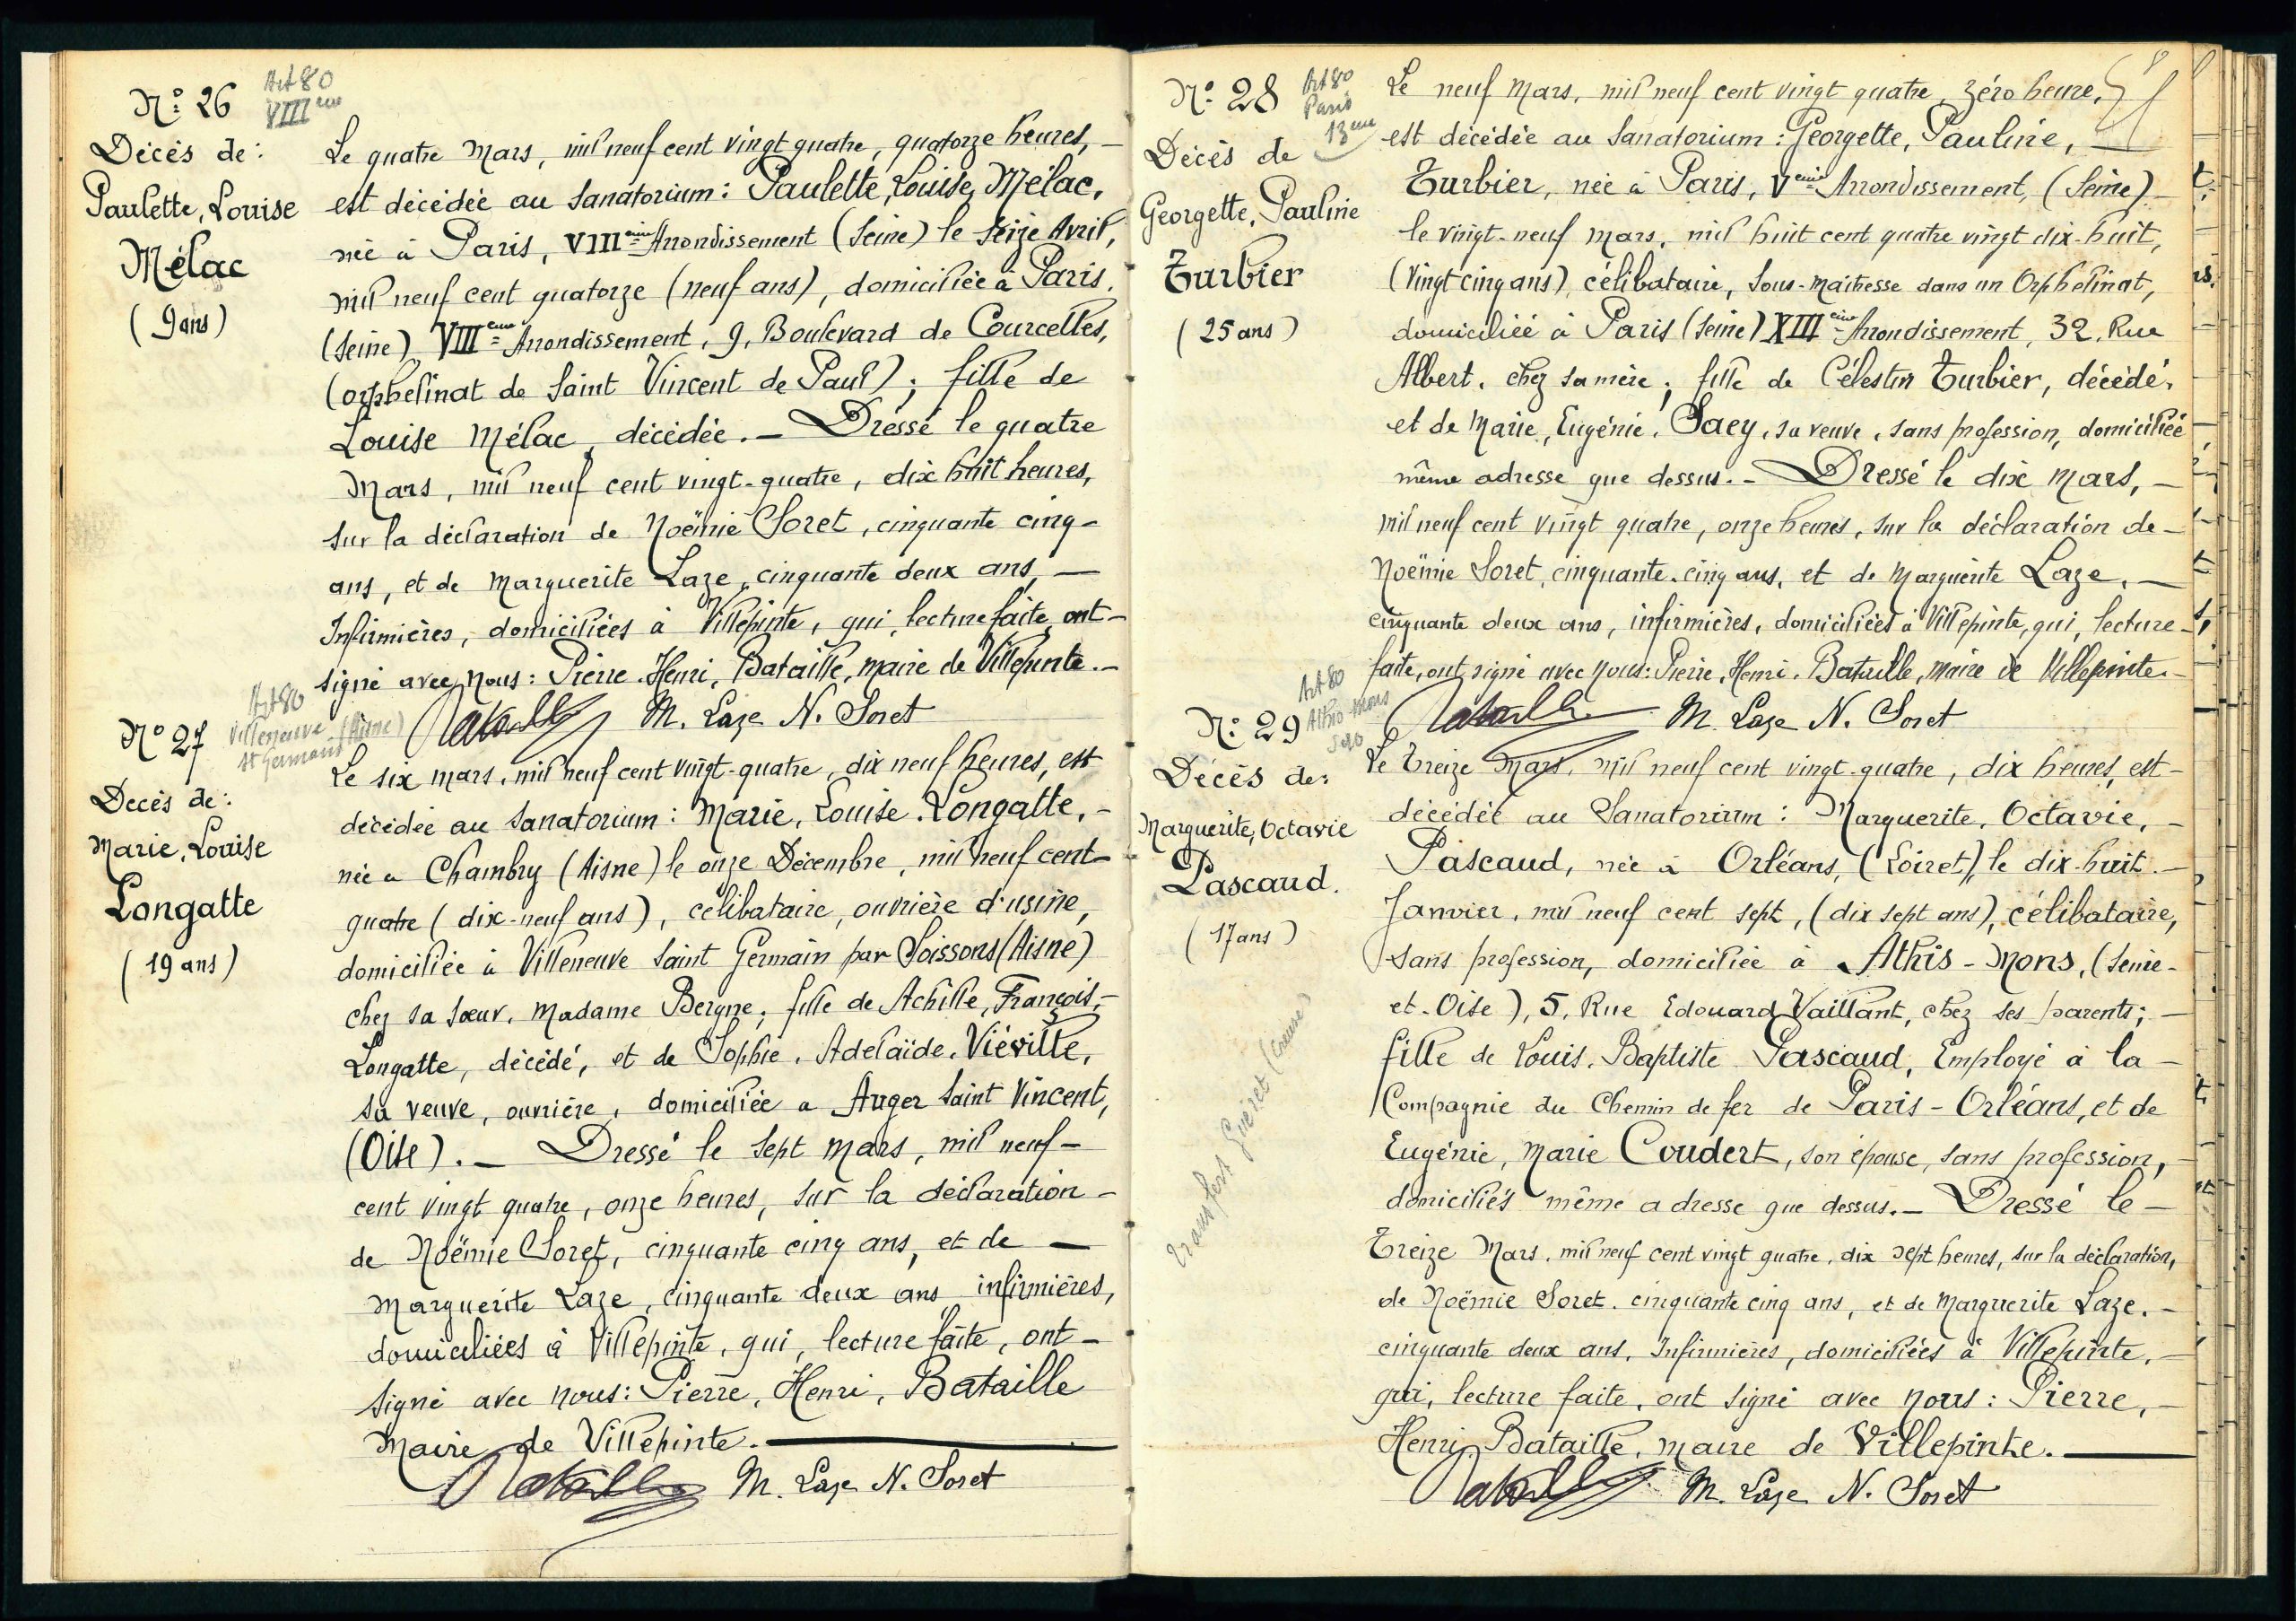 N° 26
Art 80
VIII eme
Décès de:
Paulette, Louise
Mélac
(9 ans)
Le quatre Mars, mil neuf cent vingt quatre, quatorze heures, —
est décédée au Sanatorium: Paulette, Louise, Mélac,
née à Paris, VIII eme Arrondissement (Seine) le seize Avril,
mil neuf cent quatorze (neuf ans), domiciliée à Paris.
(Seine) VIII eme Arrondissement, 9, Boulevard de Courcelles,
(orphelinat de Saint Vincent de Paul); fille de
Louise Mélac, décédée. — Dressé le quatre
Mars, mil neuf cent vingt-quatre, dix huit heures,
sur la déclaration de Noëmie Soret, cinquante cinq -
ans, et de Marguerite Laze, cinquante deux ans, —
Infirmières, domiciliées à Villepinte, qui, lecture faite, ont -
signé avec Nous: Pierre, Henri, Bataille, maire de Villepinte. —
Bataille M. Laze N. Soret
N° 27
Art 80
Villeneuve
St Germain (Aisne)
Décès de:
Marie, Louise
Longatte
(19 ans)
Le six mars, mil neuf cent vingt-quatre, dix neuf heures, est
décédée au Sanatorium: Marie, Louise, Longatte, -
née à Chambry (Aisne) le onze Décembre, mil neuf cent -
quatre (dix-neuf ans), célibataire, ouvrière d'usine,
domiciliée à Villeneuve Saint Germain par Soissons (Aisne)
chez sa sœur, Madame Bergne; fille de Achille, François, -
Longatte, décédé, et de Sophie, Adelaïde, Viéville,
sa veuve, ouvrière, domiciliée a Auger Saint Vincent,
(Oise). — Dressé le sept Mars, mil neuf -
cent vingt quatre, onze heures, sur la déclaration -
de Noëmie Soret, cinquante cinq ans, et de —
Marguerite Laze, cinquante deux ans, infirmières,
domiciliées à Villepinte, qui, lecture faite, ont -
signé avec nous: Pierre, Henri, Bataille
Maire de Villepinte. —
Bataille M. Laze N. Soret
N° 28
Art 80
Paris
13 eme
Décès de
Georgette, Pauline
Turbier
(25 ans)
Le neuf Mars, mil neuf cent vingt quatre, zéro heure,
est décédée au Sanatorium: Georgette, Pauline, —
Turbier, née à Paris, V eme Arrondissement, (Seine) -
le vingt-neuf mars, mil huit cent quatre vingt dix-huit,
(vingt cinq ans), célibataire, Sous-maitresse dans un Orphelinat,
domiciliée à Paris (Seine) XIII eme Arrondissement, 32, Rue
Albert, chez sa mère; fille de Célestin Turbier, décédé,
et de Marie, Eugénie, Saey, sa veuve, sans profession, domiciliée
même adresse que dessus. - Dressé le dix Mars, —
mil neuf cent vingt quatre, onze heures, sur la déclaration de -
Noëmie Soret, cinquante-cinq ans, et de Marguerite Laze, —
cinquante deux ans, infirmières, domiciliées à Villepinte, qui, lecture -
faite, ont signé avec Nous: Pierre, Henri, Bataille, Maire de Villepinte. -
Bataille M. Laze N. Soret
N° 29
Art 80
Athis Mons
S&O
Décès de:
Marguerite, Octavie
Pascaud.
(17 ans)
transfert Guéret (Creuse)
Le Treize Mars, mil neuf cent vingt-quatre, dix heures, est -
décédée au Sanatorium: Marguerite, Octavie, -
Pascaud, née à Orléans, (Loiret), le dix-huit. -
Janvier, mil neuf cent sept, (dix sept ans), célibataire,
sans profession, domiciliée à Athis-Mons, (Seine-
et-Oise), 5, Rue Edouard Vaillant, chez ses parents; -
fille de Louis, Baptiste Pascaud, Employé à la -
Compagnie du Chemin de fer de Paris-Orléans, et de
Eugénie, Marie Coudert, son épouse, sans profession, -
domiciliés même adresse que dessus. - Dressé le -
Treize Mars, mil neuf cent vingt quatre, dix sept heures, sur la déclaration,
de Noëmie Soret, cinquante cinq ans, et de Marguerite Laze. -
cinquante deux ans, Infirmières, domiciliées à Villepinte, -
qui, lecture faite, ont signé avec Nous: Pierre, -
Henri, Bataille, maire de Villepinte. —
Bataille M. Laze N. Soret